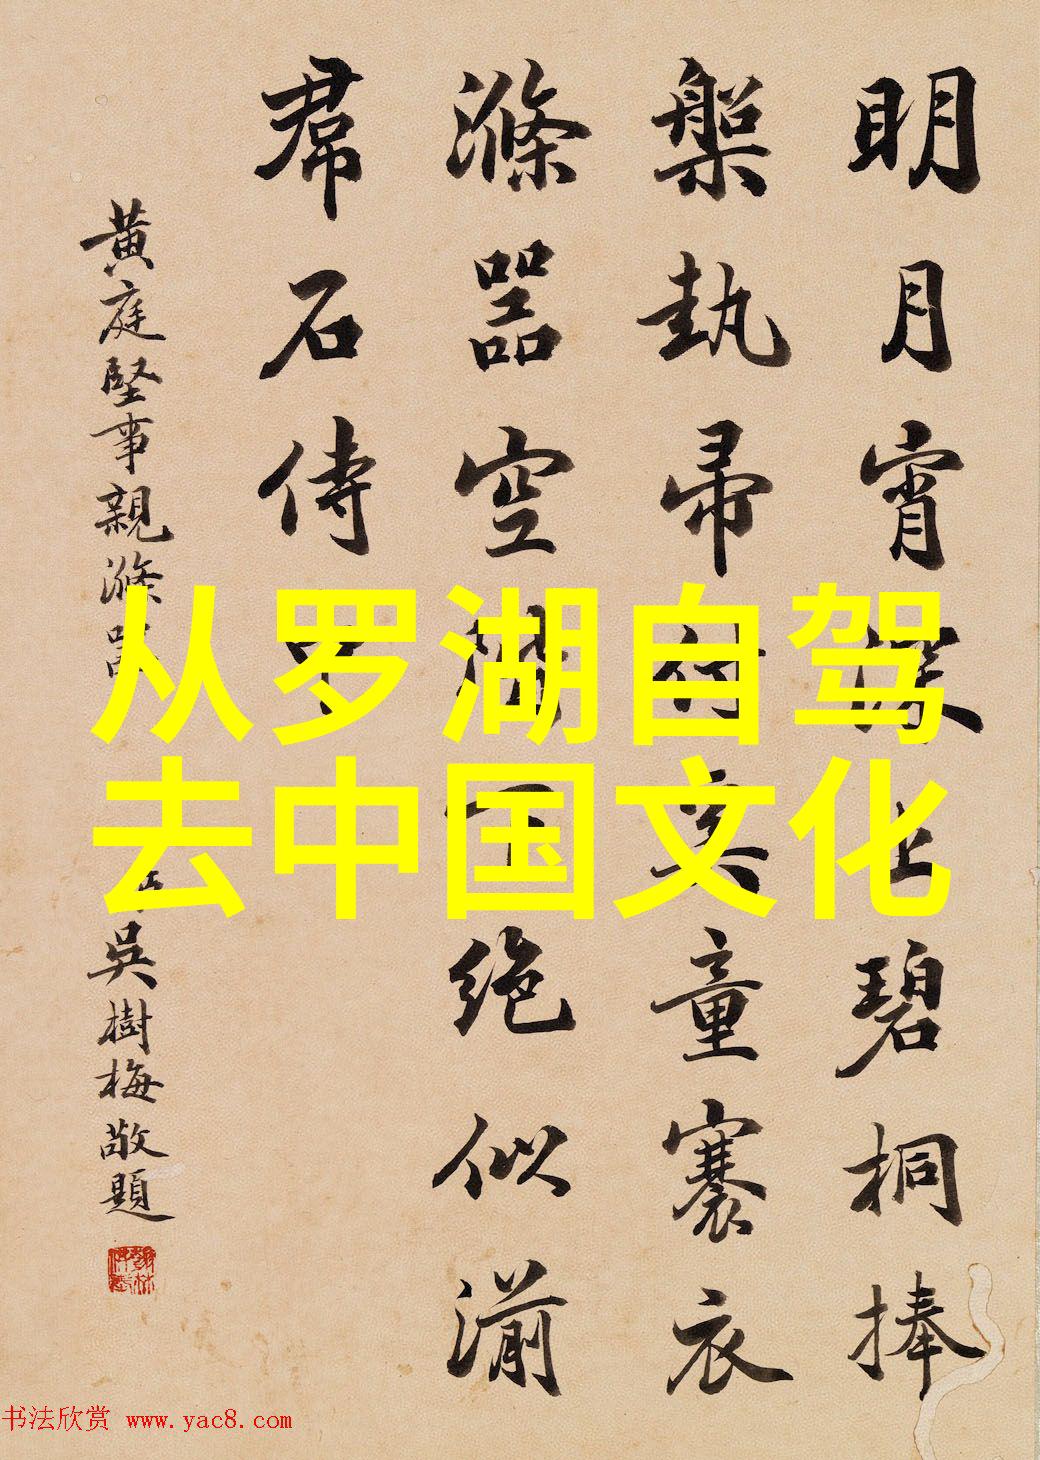 明月宵深上碧桐捧
槃執帚付奚童褰衣
滌器空下絕似湔
帬石侍
黃庭堅事親滌器
吳樹梅敬題
从罗湖自驾
去中国文化
书法欣赏 www.yac8.com